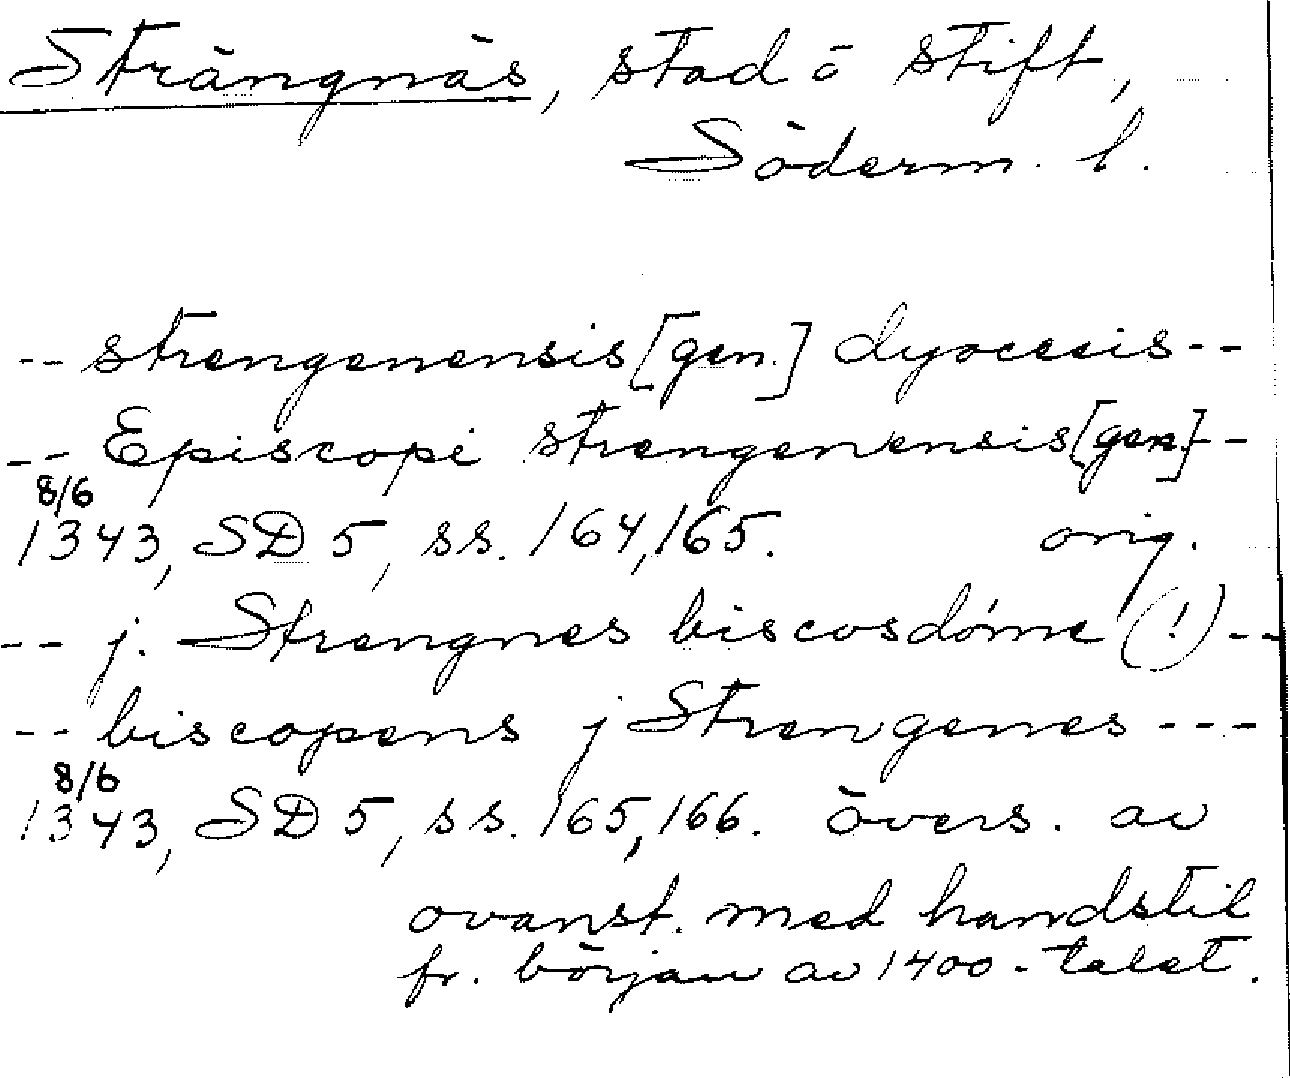 Strängnäs, stad o stift,
Söderm. l.
-- strengenensis [gen.] dyocesis --
-- Episcopi strengenensis [gen.] --
8/6
1343, SD 5, ss. 164, 165. orig.
-- j. Strengnes biscosdóme (!) --
-- biscopens j Strengenes ---
8/6
1343, SD 5, ss. 165, 166. övers. av
ovanst. med handstil
fr. början av 1400-talet.